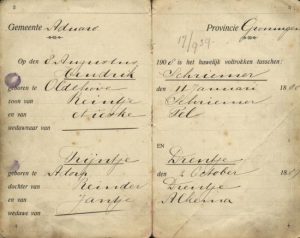 Gemeente Aduard
Provincie Groningen
17/9 39.
Op den 8 Augustus
190 is het huwelijk voltrokken tusschen:
Hendrik
Schriemer
geboren te Oldehove
den 11 Januari 18
zoon van Reintje
Schriemer
en van
Tel
weduwnaar van
EN
Trijntje
Drentje
geboren te
den October 18
dochter van Reinder
Drentje
en van Jantje
Alkema
weduwe van